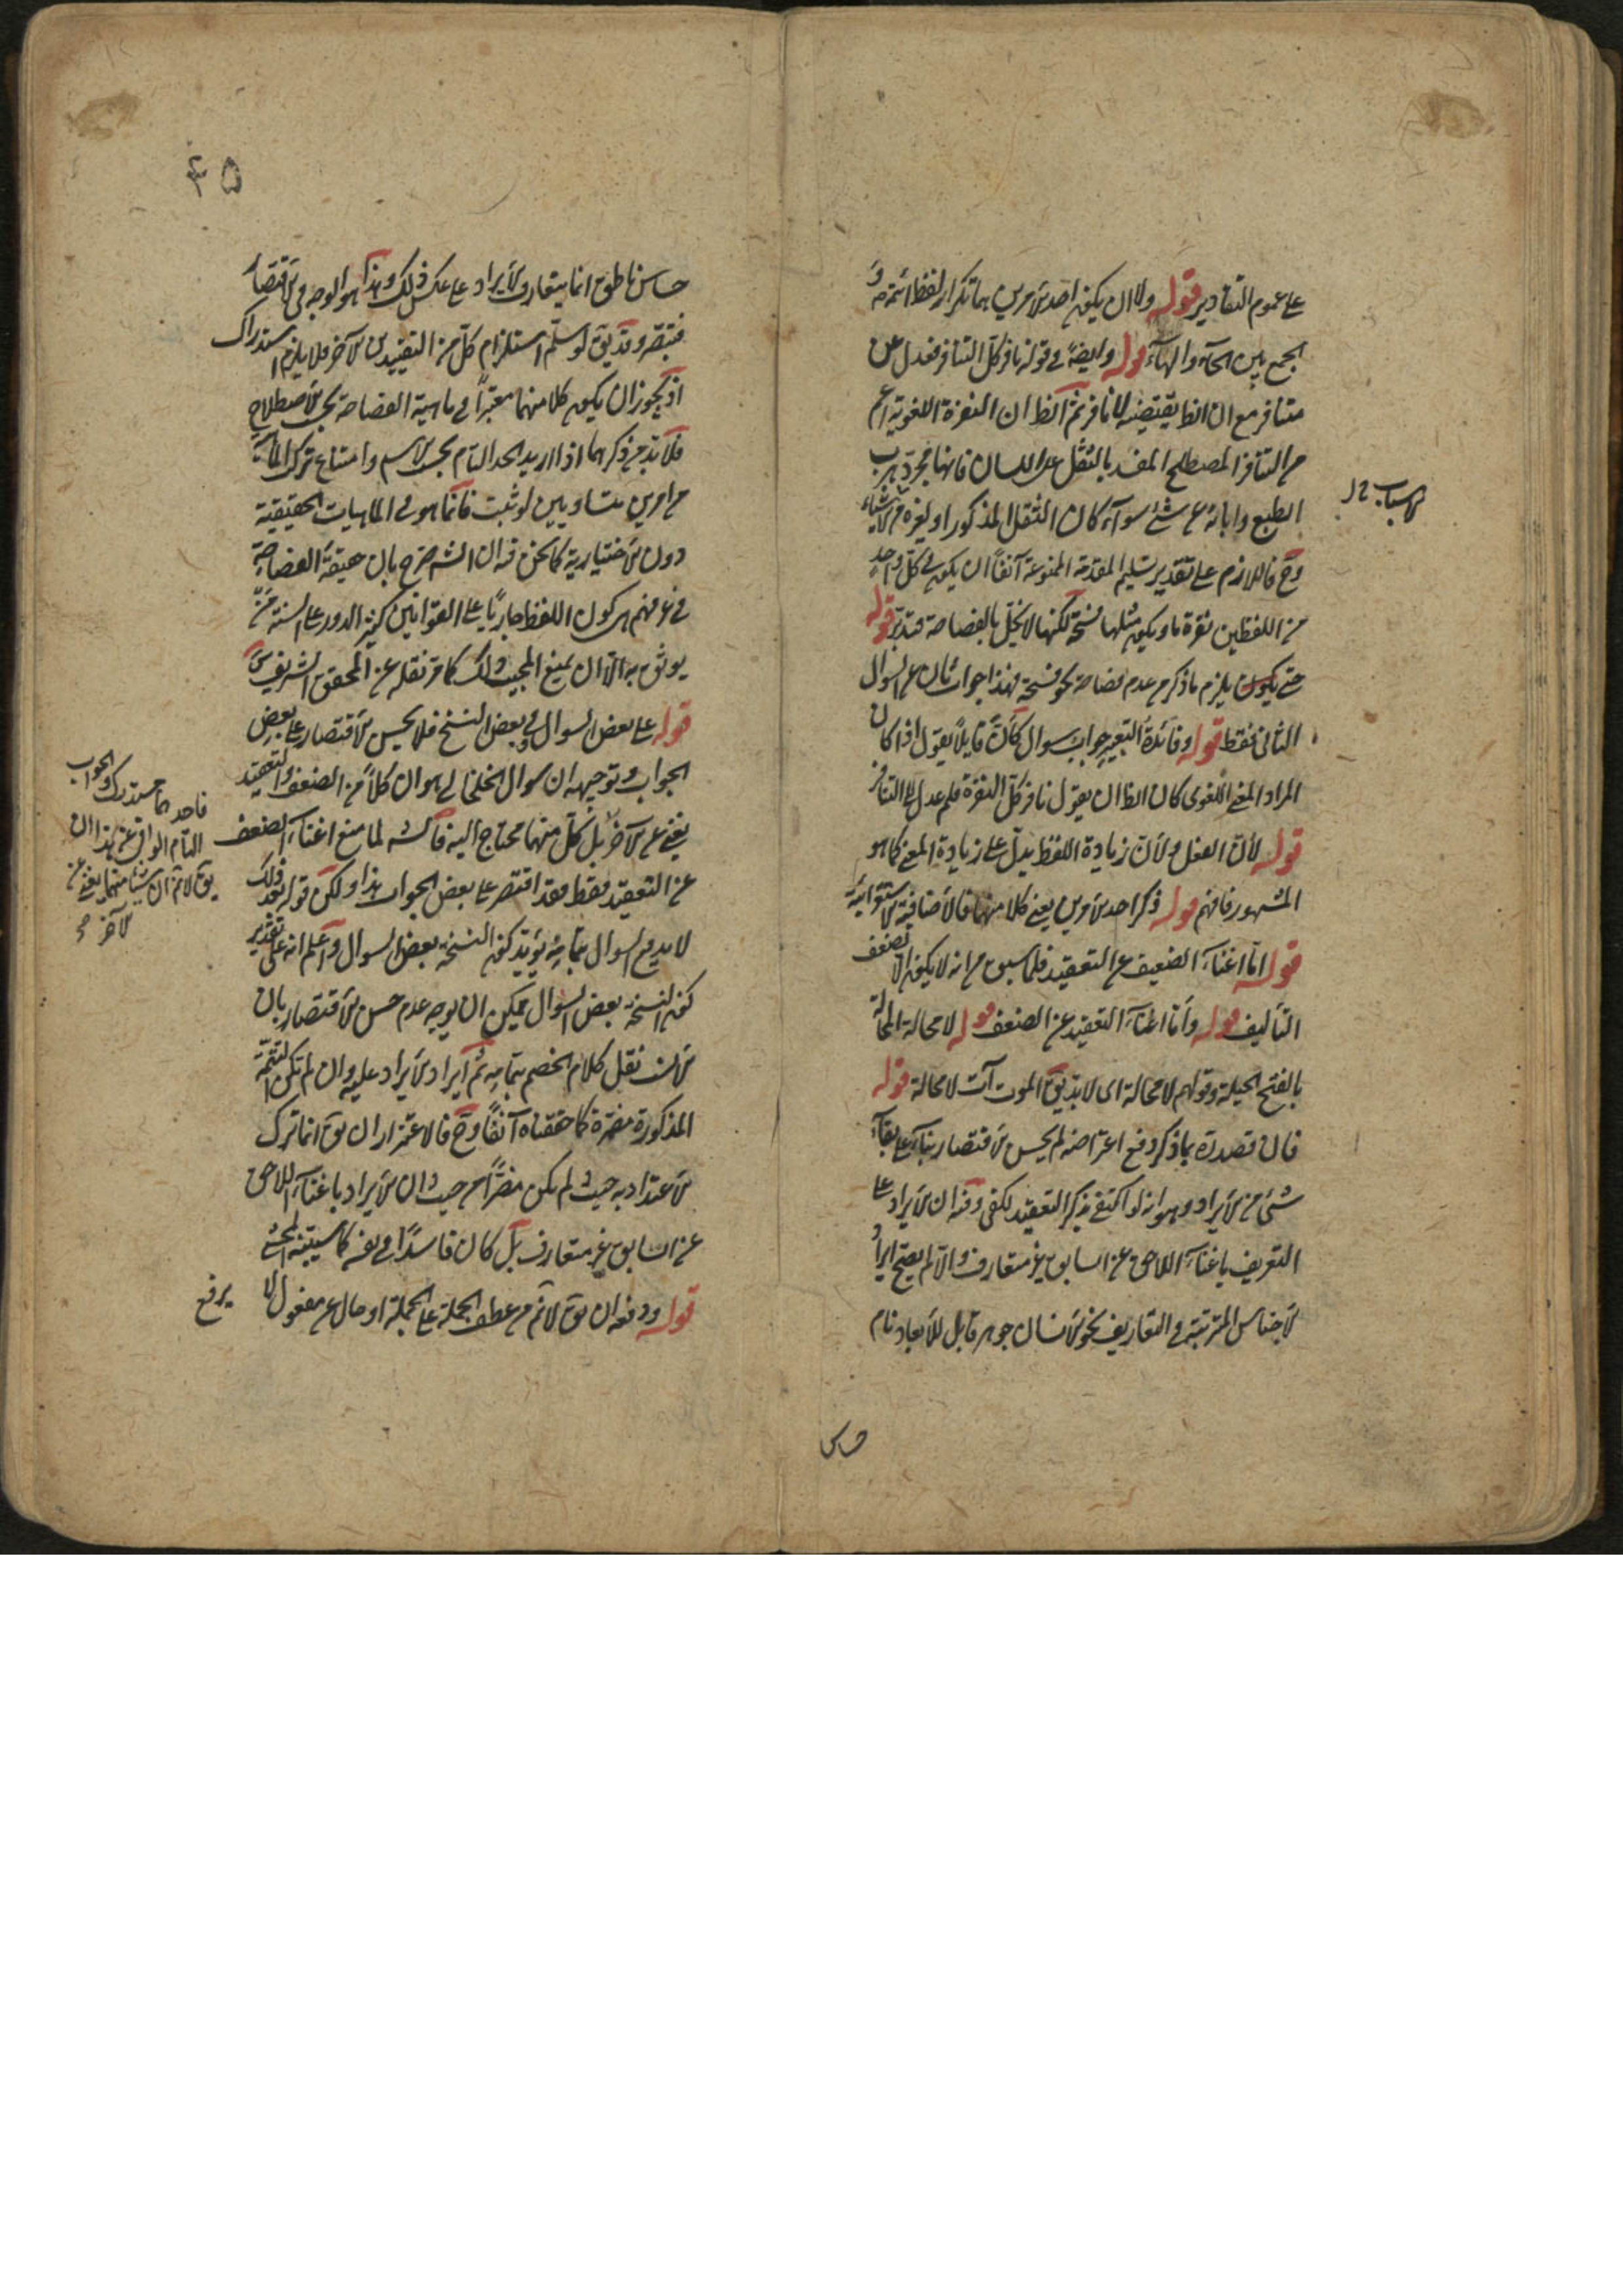 على عموم التقادير قوله ولا ان يكون احد الامرين بهما تكرار لفظ ائمة و
الجمع بين الحاء والهاء قوله وايضا في قوله نافر كل التنافر فعدل عن
متنافر مع ان الظ يقتضيه لانا نافر ثم الظ ان النفرة اللغوية اعم
من التنافر المصطلح المفسر بالثقل على اللسان فانها مجرد هرب
الطبع وابائه عن شئ سواء كان الثقل المذكور او لغيره من الاشياء
الاسباب
وح فاللازم على تقدير تسليم المقدمة الممنوعة آنفا ان يكون في كل واحد
من اللفظين نفرة ما ويكون مثلها لكنها لا يخل بالفصاحة فتدبر قوله
حتى يلزم ما ذكر من عدم فصاحة نحو فهذا جواب ثان عن السوال
الثانى فقط قوله وفائدة التعبير جواب سوال كان قايلا يقول اذا كان
المراد المعنى اللغوى كان الظ ان يقول نافر كل النفرة فلم عدل الى التنافر
قوله لان الفعل ولان زيادة اللفظ يدل على زيادة المعنى كما هو
المشهور فافهم قوله ذكر احد الامرين يعنى كلا منهما فالاضافة للاستغراقية
قوله اما اغناء الضعيف عن التعقيد فلما سبق من انه لا يكون الا لضعف
التأليف قوله واما اغناء التعقيد عن الضعف قوله لا محالة المحالة
بالفتح الحيلة وقولهم لا محالة اى لا بد يق الموت آت لا محالة قوله
فان قصده بما ذكر دفع اعتراضه لم يحسن الاقتصار بناء على بقاء
شئ من الايراد وهو انه لو اكتفى بذكر التعقيد لكفى وفيه ان الايراد على
التعريف باغناء اللاحق عن السابق غير متعارف والا لم يصح ايراد
الاجناس المترتبة في التعاريف نحو الانسان جوهر قابل للابعاد نام
حساس
٤٥
حساس ناطق انما يتعارف الايراد على عكس ذلك وهذا هو الوجه في الاقتصار
فتبصر وقد يق لو سلم استلزام كل من التقييدين الآخر فلا يلزم استدراك
اذ يجوز ان يكون كلا منهما معتبرا في ماهية الفصاحة بحسب الاصطلاح
فلا بد من ذكرهما اذا اريد الحد التام بحسب الاسم وامتناع تركب الماهية
من امرين متساويين لو ثبت فانما هو في الماهيات الحقيقية
دون الاختيارية كما نحن فيه ان الش صرح بان حقيقة الفصاحة
في عرفهم هى كون اللفظ جاريا على القوانين كثير الدور على السنة من
يوثق به الا ان يمنع المجيب ذلك كما مر نقله عن المحقق الشريف
قوله على بعض السوال وفي بعض النسخ فلا يحسن الاقتصار على بعض
الجواب وتوجيهه ان سوال الخلخالى هو ان كلا من الضعف والتعقيد
يغنى عن الآخر بل كل منهما محتاج اليه فالش لما منع اغناء الضعف
عن التعقيد فقط فقد اقتصر على بعض الجواب هذا ولكن قوله فذلك
لا يدفع السوال بتمامه يؤيد كون النسخة بعض السوال واعلم انه على تقدير
كون النسخة بعض السوال يمكن ان يوجه عدم حسن الاقتصار بان
نقل كلام الخصم بتمامه ثم ايراد الايراد عليه وان لم تكن التتمة
المذكورة مضرة كما حققناه آنفا وح فالاعتذار ان يق انما ترك
الاعتداد به حيث لم يكن مضرا من حيث ان الايراد باغناء اللاحق
عن السابق غير متعارف بل كان فاسدا في نفسه كما سيبينه المحشى
قوله ودفعه ان يق لا ثم من عطف الجملة على الجملة او حال عن مفعول لا يرفع
فاحدهما مستدرك والجواب
التام الوافى عن هذا ان
يق لا ثم ان شيئا منهما يغنى عن
الآخر